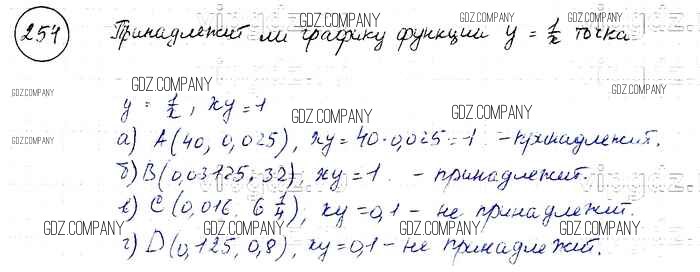 254 Принадлежит ли графику функции y = 1/x точка
y = 1/x, xy = 1
а) A(40, 0,025), xy = 40·0,025 = 1 - принадлежит.
б) B(0,03125; 32), xy = 1 - принадлежит.
в) C(0,016. 6 1/4), xy = 0,1 - не принадлежит.
г) D(0,125, 0,8), xy = 0,1 - не принадлежит.
GDZ.COMPANY
GDZ.COMPANY
GDZ.COMPANY
GDZ.COMPANY
GDZ.COMPANY
GDZ.COMPANY
GDZ.COMPANY
GDZ.COMPANY
GDZ.COMPANY
GDZ.COMPANY
GDZ.COMPANY
GDZ.COMPANY
GDZ.COMPANY